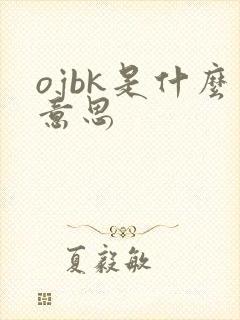 ojbk是什麼
意思
夏毅敏